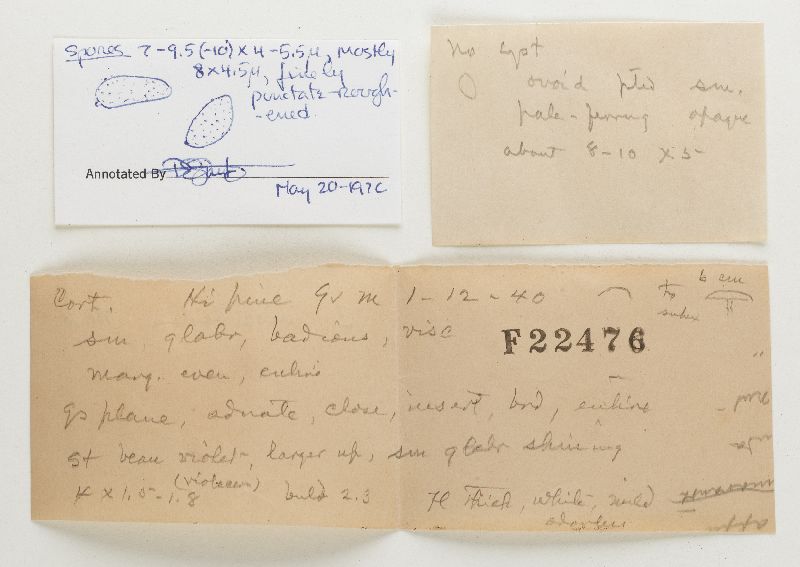 Spores 7-9.5(-10) x 4-5.5µ, mostly
8 x 4.5µ, finely
punctate-rough-
-ened.
Annotated By
May 20-197
No cyst
ovoid pted sm.
pale-ferrug opaque
about 8-10 x 5
Cort. Hi pine Gv m 1-12-40
to 6 cm
F22476
sm glabr, badious, visc
marg. even, entire
Gs plane, adnate, close, insert, brd, entire
St beau violet, larger up, sm glabr shining
(violaceus)
4 x 1.5-1.8 bulb 2.3 Fl thick, white, mild
odorless